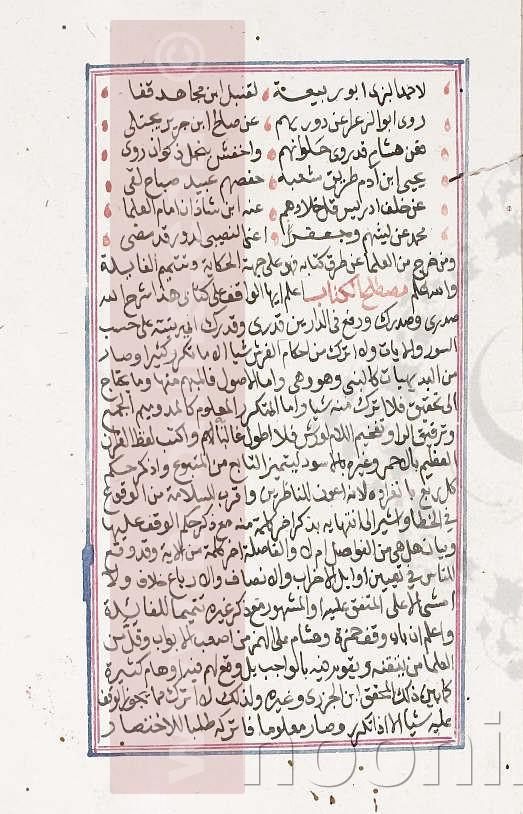 لاحمد البزى ابو ربيعة لقنبل ابن مجاهد قفا
روى ابو الزعرا عن دوريهم عن صالح ابن جرير يجتلى
فعن هشام قد روى حلوانهم واخفش نجل ذكوان روى
يحيى ابن ادم طريق شعبة حفصهم عبيد صباح لقى
عن خلف ادريس قل خلادهم عنه ابن شاذان امام العلما
محمد عن ليثهم وجعفر اعنى النصيبى لدور قد مضى
ومن خرج من العلما عن طرق كتابه فهو على جهة الحكاية وتتميم الفايدة
والله اعلم مصطلح الكتاب اعلم ايها الواقف على كتابى هذا شرح الله
صدرى وصدرك ورفع فى الدارين قدرى وقدرك انى رتبته على حسب
السور والايات ولا اترك من احكام الفرش شيا الا ما تكرر كثيرا وصار
من البديهيات كالنبى وهو وهى واما الاصول فالمهم منها وما يحتاج
الى تحقيق فلا اترك منه شيا واما المتكرر المعلوم كالمد وميم الجمع
وترقيق الرا وتفخيم اللام لورش فلا اطول غالبا به واكتب لفظ القران
العظيم بالاحمر وغيره بالاسود ليتميز التابع من المتبوع واذكر حكم
كل ربع بانفراده لانه اعون للناظرين واقرب للسلامة من الوقوع
فى الخطا واشير الى انتهايه بذكر اخر كلمة منه مع ذكر حكم الوقف عليها
وبيان هل هى من الفواصل ام لا والفاصلة اخر كلمة من الاية وقد وقع
للناس فى تعيين اوايل الاحزاب والانصاف والارباع خلاف ولا
امشى الا على المتفق عليه او المشهور مع ذكر غيره تتميما للفايدة
واعلم ان باب وقف حمزة وهشام على الهمز من اصعب الابواب وقل من
العلما من يتقنه ويقوم فيه بالواجب بل وقع لهم فيه اوهام كثيرة
كما بين ذلك المحقق ابن الجزرى وغيره ولذلك لا اترك مما يجوز الوقف
عليه شيا الا اذا تكرر وصار معلوما فاتركه طلبا للاختصار